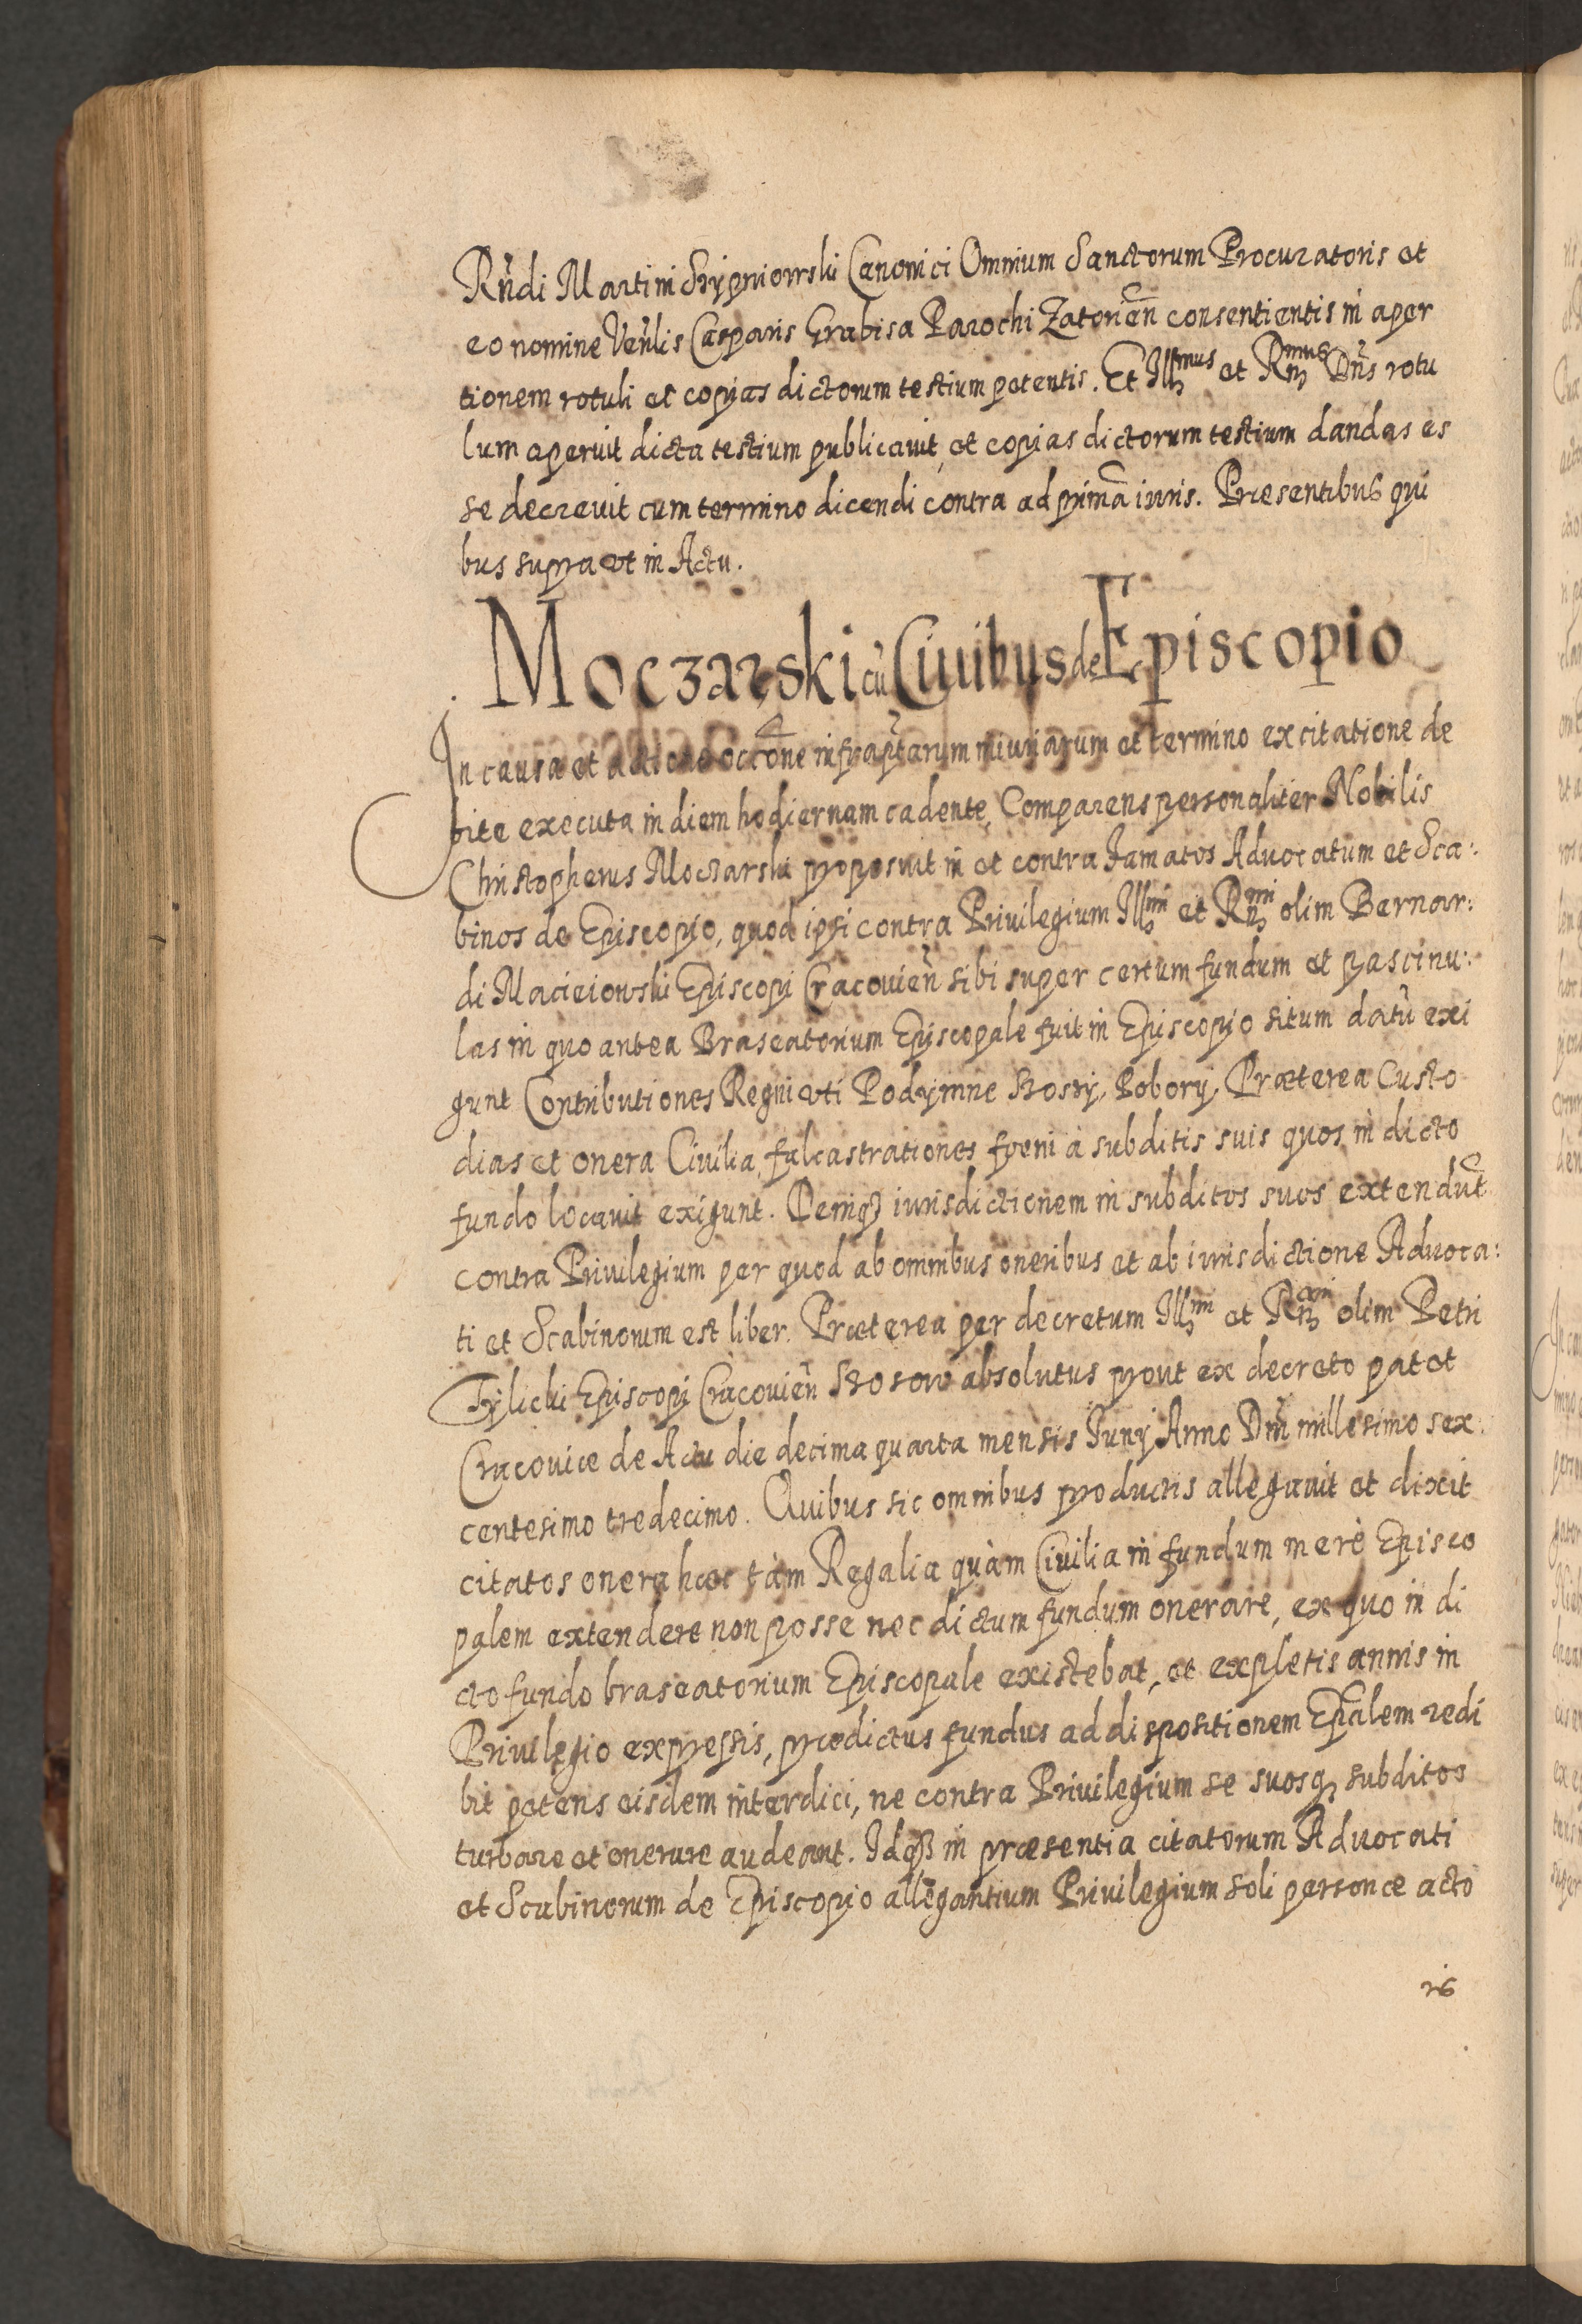 Rńdi Martini Skrypniowski Canonici Omnium Sanctorum Procuratoris et
eo nomine Veńlis Casparis Grabisa Parochi Zatorień consentientis in aper
tionem rotuli et copias dictorum testium petentis. Et Illmus et Rmus Dńs rotu
lum aperuit dicta testium publicavit, et copias dictorum testium dandas es
se decrevit cum termino dicendi contra ad primā iuris. Præsentibus qui
bus supra ut in Actu.
Moczarski cū Civibus de Episcopio
In causa et actione occōne infraptarum iniuriarum et termino ex citatione de
bite executa in diem hodiernam cadente, Comparens personaliter Nobilis
Christopherus Moczarski proposuit in et contra Famatos Advocatum et Sca:
binos de Episcopio, quod ipsi contra Privilegium Illmi et Rmi olim Bernar:
di Macieiowski Episcopi Cracovień sibi super certum fundum et pascinu:
las in quo antea Braseatorium Episcopale fuit in Episcopio situm datū exi
gunt Contributiones Regni uti Podymne Szossy, Pobory, Præterea Custo
dias et onera Civilia, falcastrationes fæni à subditis suis quos in dicto
fundo locavit exigunt. Deniqz iurisdictionem in subditos suos extendūt
contra Privilegium per quod ab omnibus oneribus et ab iurisdictione Advoca:
ti et Scabinorum est liber. Præterea per decretum Illmi et Rmi olim Petri
Tylicki Episcopi Cracovień Szosow absolutus prout ex decreto patet
Cracoviæ de Actu die decima quarta mensis Iunij Anno Dńi millesimo sex:
centesimo tredecimo. Quibus sic omnibus productis allegavit et dixit
citatos onera hæc tàm Regalia quàm Civilia in fundum merè Episco
palem extendere non posse nec dictum fundum onerare, ex quo in di
cto fundo braseatorium Episcopale existebat, et expletis annis in
Privilegio expressis, prædictus fundus ad dispositionem Epālem redi
bit petens eisdem interdici, ne contra Privilegium se suosqz subditos
turbare et onerare audeant. Idqz in præsentia citatorum Advocati
et Scabinorum de Episcopio allegantium Privilegium soli personæ acto
ris